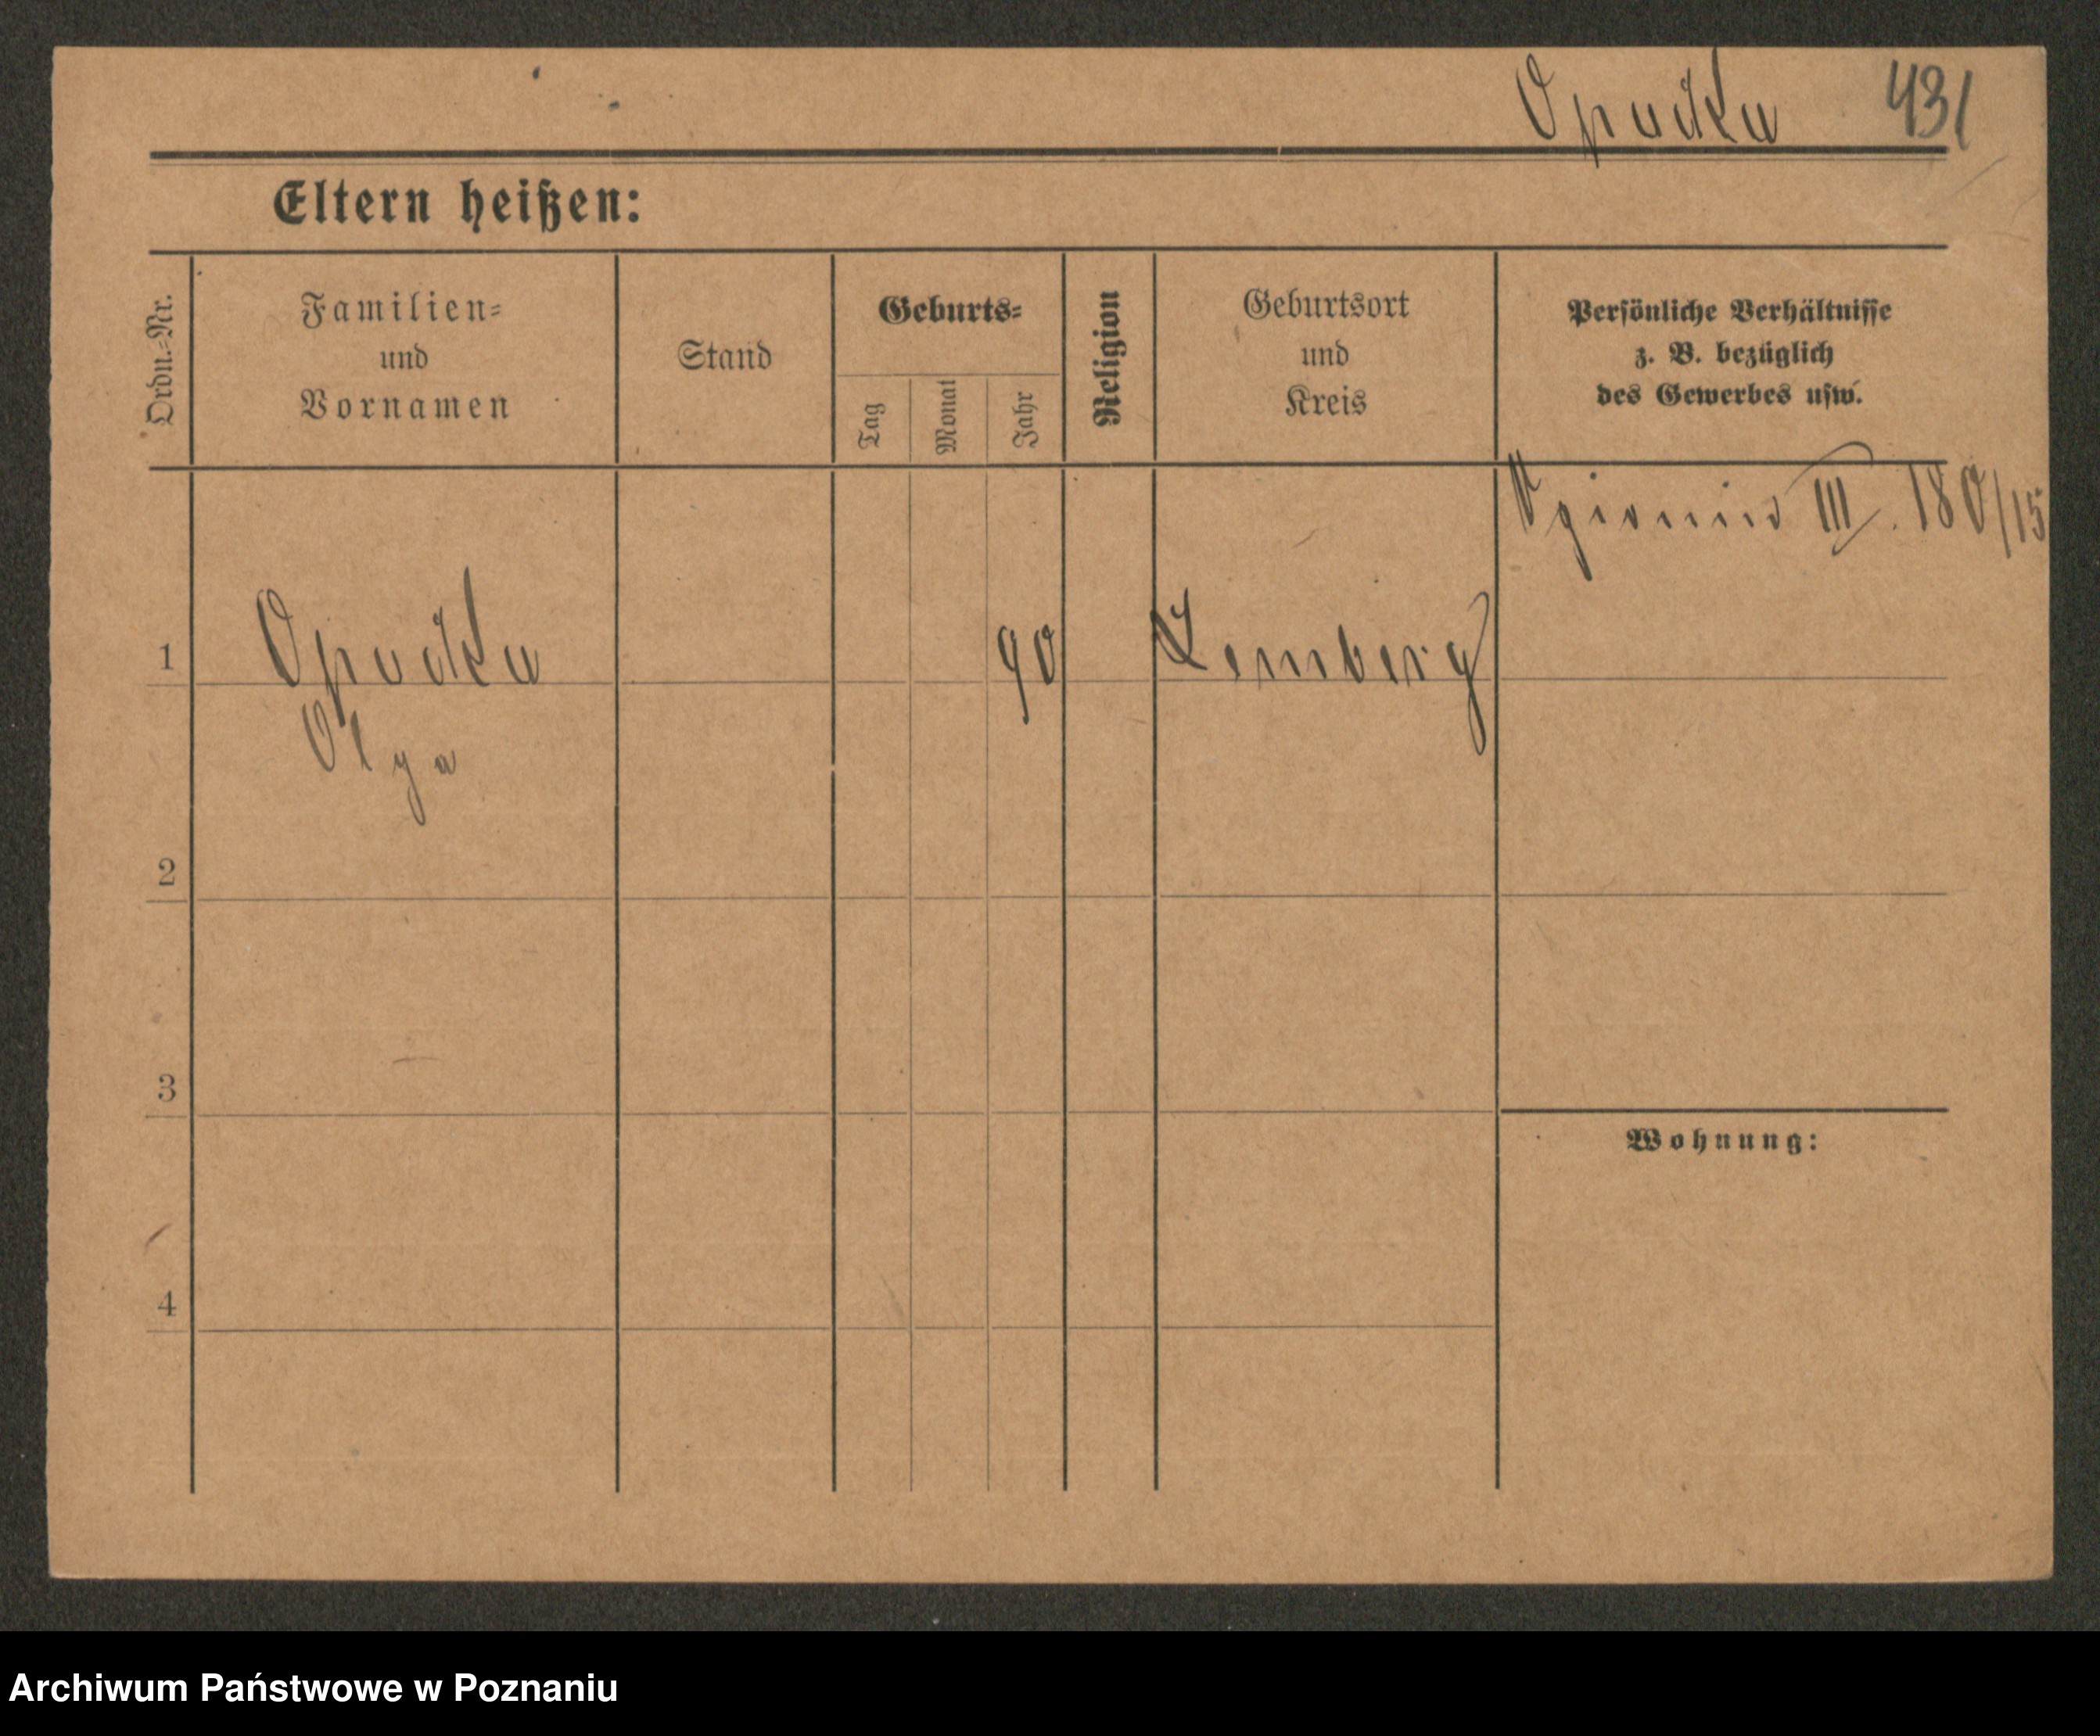 Opadka 431
Eltern heißen:
Ordn.=Nr.
Familien=
und
Vornamen
Stand
Geburts=
Tag
Monat
Jahr
Religion
Geburtsort
und
Kreis
Persönliche Verhältnisse
z. B. bezüglich
des Gewerbes usw.
III. 180/15
1 Opadka 90 Lemberg
Olga
2
3
Wohnung:
4
Archiwum Państwowe w Poznaniu